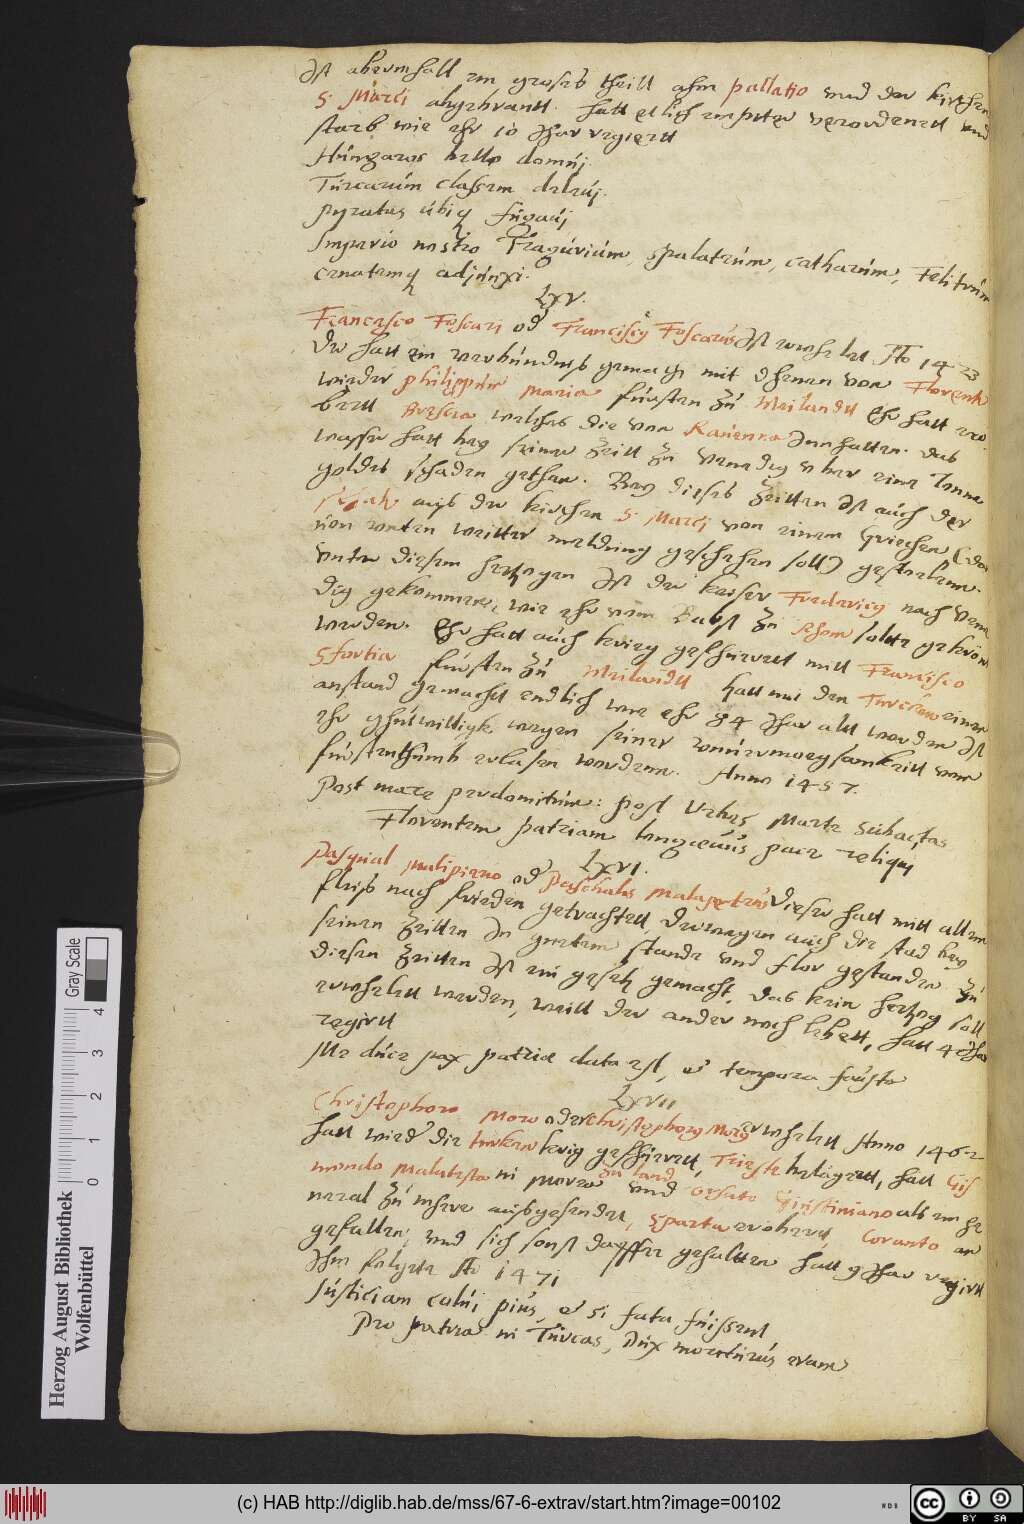 Ist abermhall ein groses theill ahm pallatio und der kirchen
S. Marci abgebrantt. hatt etlich empter verordenett und
starb wie ehr 10 Jhar regierett
Hungaros bello domui
Turcarum classem delevi.
Pyratas ubiq fugavi
Imperio nostro Tragurium, Spalatrum, Catharum,
adjunxi.
LXV.
Francesco Foscari od Franciscus Foscarus Ist erwehlet Ao 1423
Der hatt ein verbundnus gemacht mit dhenen von Florentz
wieder Philippum Maria fursten zu Meilandt Ehr hatt ero
bertt Brescia welches die von Ravenna Innhatten. das
wasser hatt bey seiner zeitt zu Venedig uber eine Tonne
goldes schaden gethan. Bey dieses zeitten Ist auch der
schatz aus der kirchen S. Marci von einem Griechen (da
von unten weitter meldung geschehen soll) gestolenn.
Unter diesem hertzogen Ist der keiser Fredericus nach Vene
dig gekommen, wie ehr vom Babst zu Rhom solte gekrön
werden. Ehr hatt auch krieg gefhurett mitt Francisco
Sfortia fursten zu Meilandt hatt mit den Turcken einen
anstand gemacht endlich wie ehr 84 Jhar alt worden Ist
ehr wegen seiner unvermoegsamkeitt vom
furstenthumb erlasen wordenn. Anno 1457.
Post mare perdomitum: post Urbes Marte subactas
Florentem patriam longaevus pace reliqui
LXVI.
Pasqual Malipiero od Paschalis Malapetrus Dieser hatt mitt allem
fleis nach frieden getrachtett, derwegen auch die stad bey
seinen zeitten In gutem stande und flor gestanden. Zu
diesen zeitten Ist ein gesetz gemacht, das kein hertzog soll
erwehlett werden, weill der ander noch lebett, hatt 4 Jhar
regirtt
Me duce pax patriae data est, et tempora fausta
LXVII
Christophoro Moro oder Christophorus Morus erwehlett Anno 1462
hatt wied die turken krig gefhurett, Trieste belagert, hatt Gis
mondo Malatesta in Morea zu land und orsato Giustiniano als ein ge
neral zu mhere ausgesendet, Sparta erobert, Coranto an
gefallen, und sich sonst dapffer gehalten hatt 9 Jhar regirtt
Ihm folgete Ao 1471
Justiciam colui pius, et si fata fuissent
Pro patria in Turcas, Dux moriturus eram
Herzog August Bibliothek
Wolfenbüttel
Gray Scale
0 1 2 3 4
(c) HAB http://diglib.hab.de/mss/67-6-extrav/start.htm?image=00102
WDB
cc
BY SA